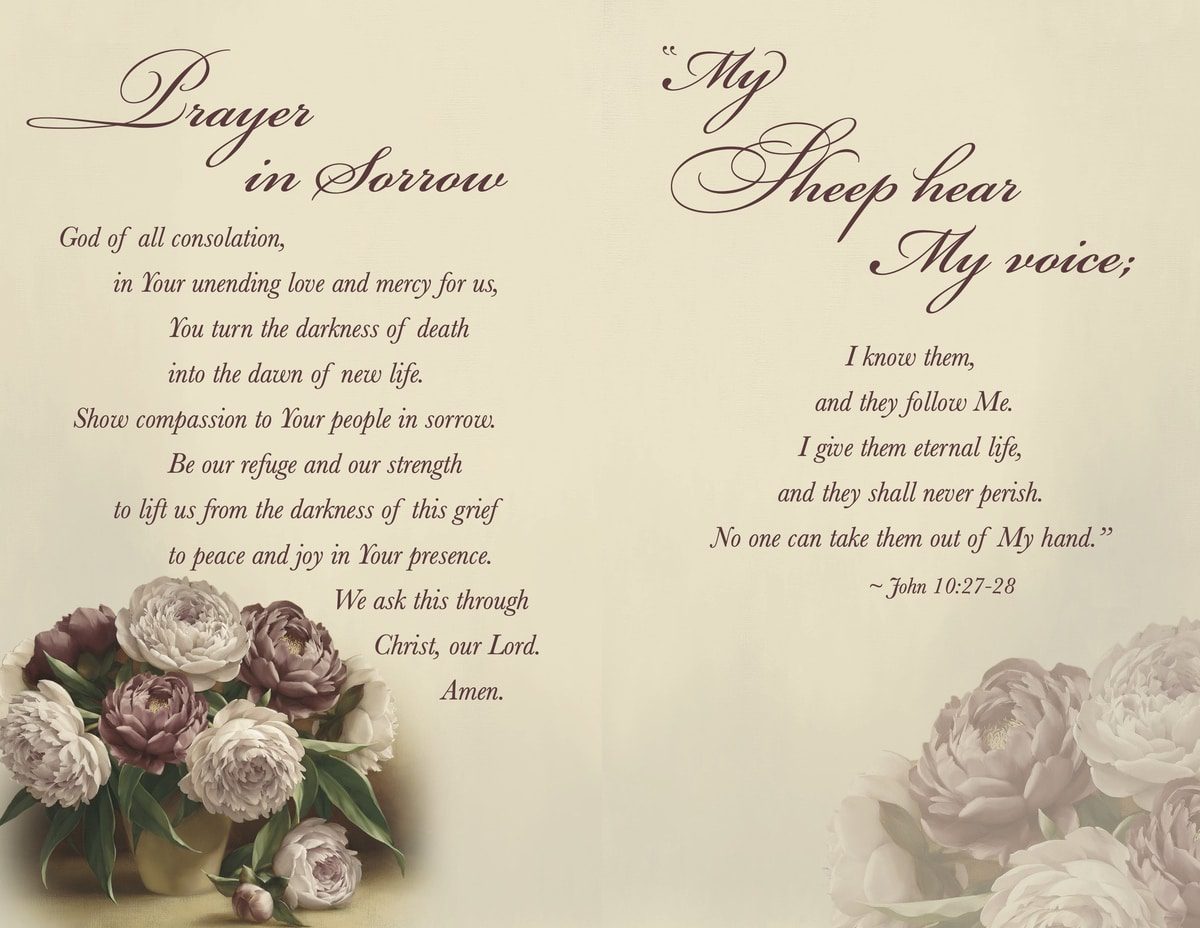 Prayer
in Sorrow
God of all consolation,
in Your unending love and mercy for us,
You turn the darkness of death
into the dawn of new life.
Show compassion to Your people in sorrow.
Be our refuge and our strength
to lift us from the darkness of this grief
to peace and joy in Your presence.
We ask this through
Christ, our Lord.
Amen.
“My
Sheep hear
My voice;
I know them,
and they follow Me.
I give them eternal life,
and they shall never perish.
No one can take them out of My hand.”
~ John 10:27-28